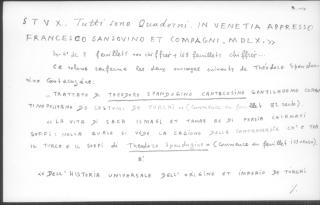 S T V X. Tutti sono Quaderni. IN VENETIA APPRESSO
FRANCESCO SANSOVINO ET COMPAGNI. MDLX. >>
feuillets non chiffrés + 188 feuillets chiffrés...
Ce volume renferme les deux ouvrages suivants de Théodore
TRATTATO DI THEODORO SPANDUGINO CANTACUSINO GENTILHUOMO
TINOPOLITANO DE COSTUMI DE TURCHI >> (Commence au feuillet 82 recto).
<< LA VITA DI SACH ISMAEL ET TAMAS RE DI PERSIA CHIAMATI
SOFFI: NELLA QUALE SI VEDE LA CAGIONE DELLA CONTROVERSIA CH'È TRA
IL TURCO E IL SOFFI DI Theodoro Spandugino >> (Commence au feuillet verso).
<< DELL' HISTORIA UNIVERSALE DELL' ORIGINE ET IMPERIO DE TURCHI